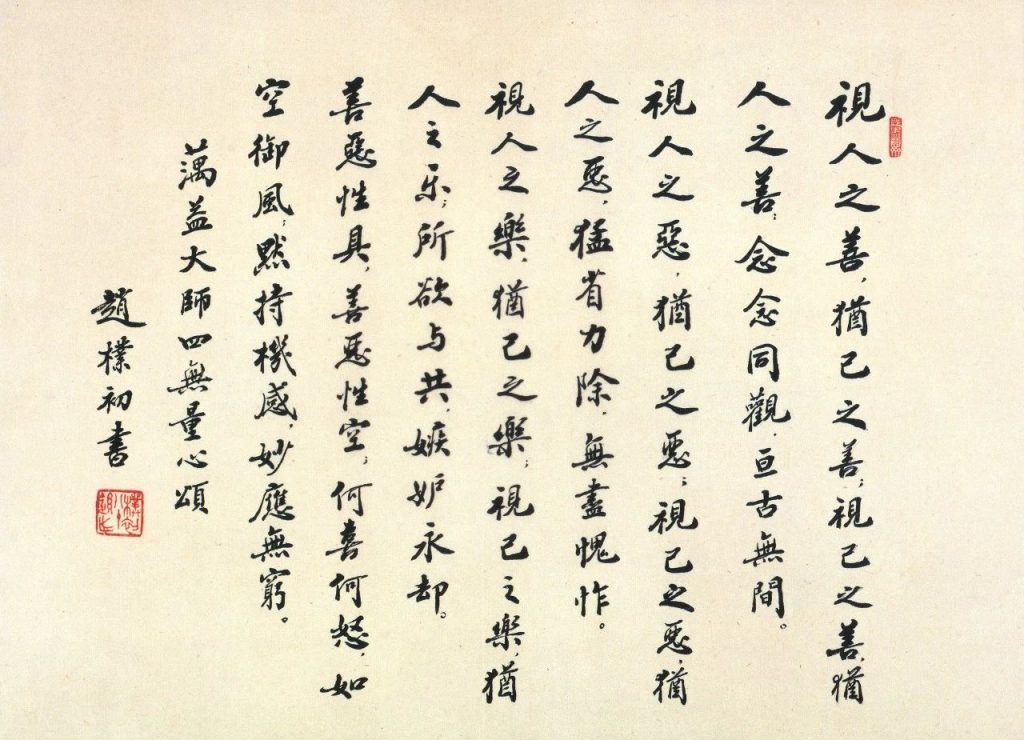 視人之善，猶己之善，視己之善，猶
人之善；念念同觀，亘古無間。
視人之惡，猶己之惡，視己之惡，猶
人之惡，猛省力除，無盡愧怍。
視人之樂，猶己之樂，視己之樂，猶
人之乐；所欲与共，嫉妒永却。
善惡性具，善惡性空，何喜何怒，如
空御風；默持機感，妙應無窮。
蕅益大師四無量心頌
趙樸初書